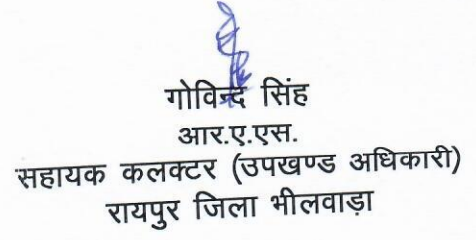 गोविन्द सिंह
आर.ए.एस.
सहायक कलक्टर (उपखण्ड अधिकारी)
रायपुर जिला भीलवाड़ा